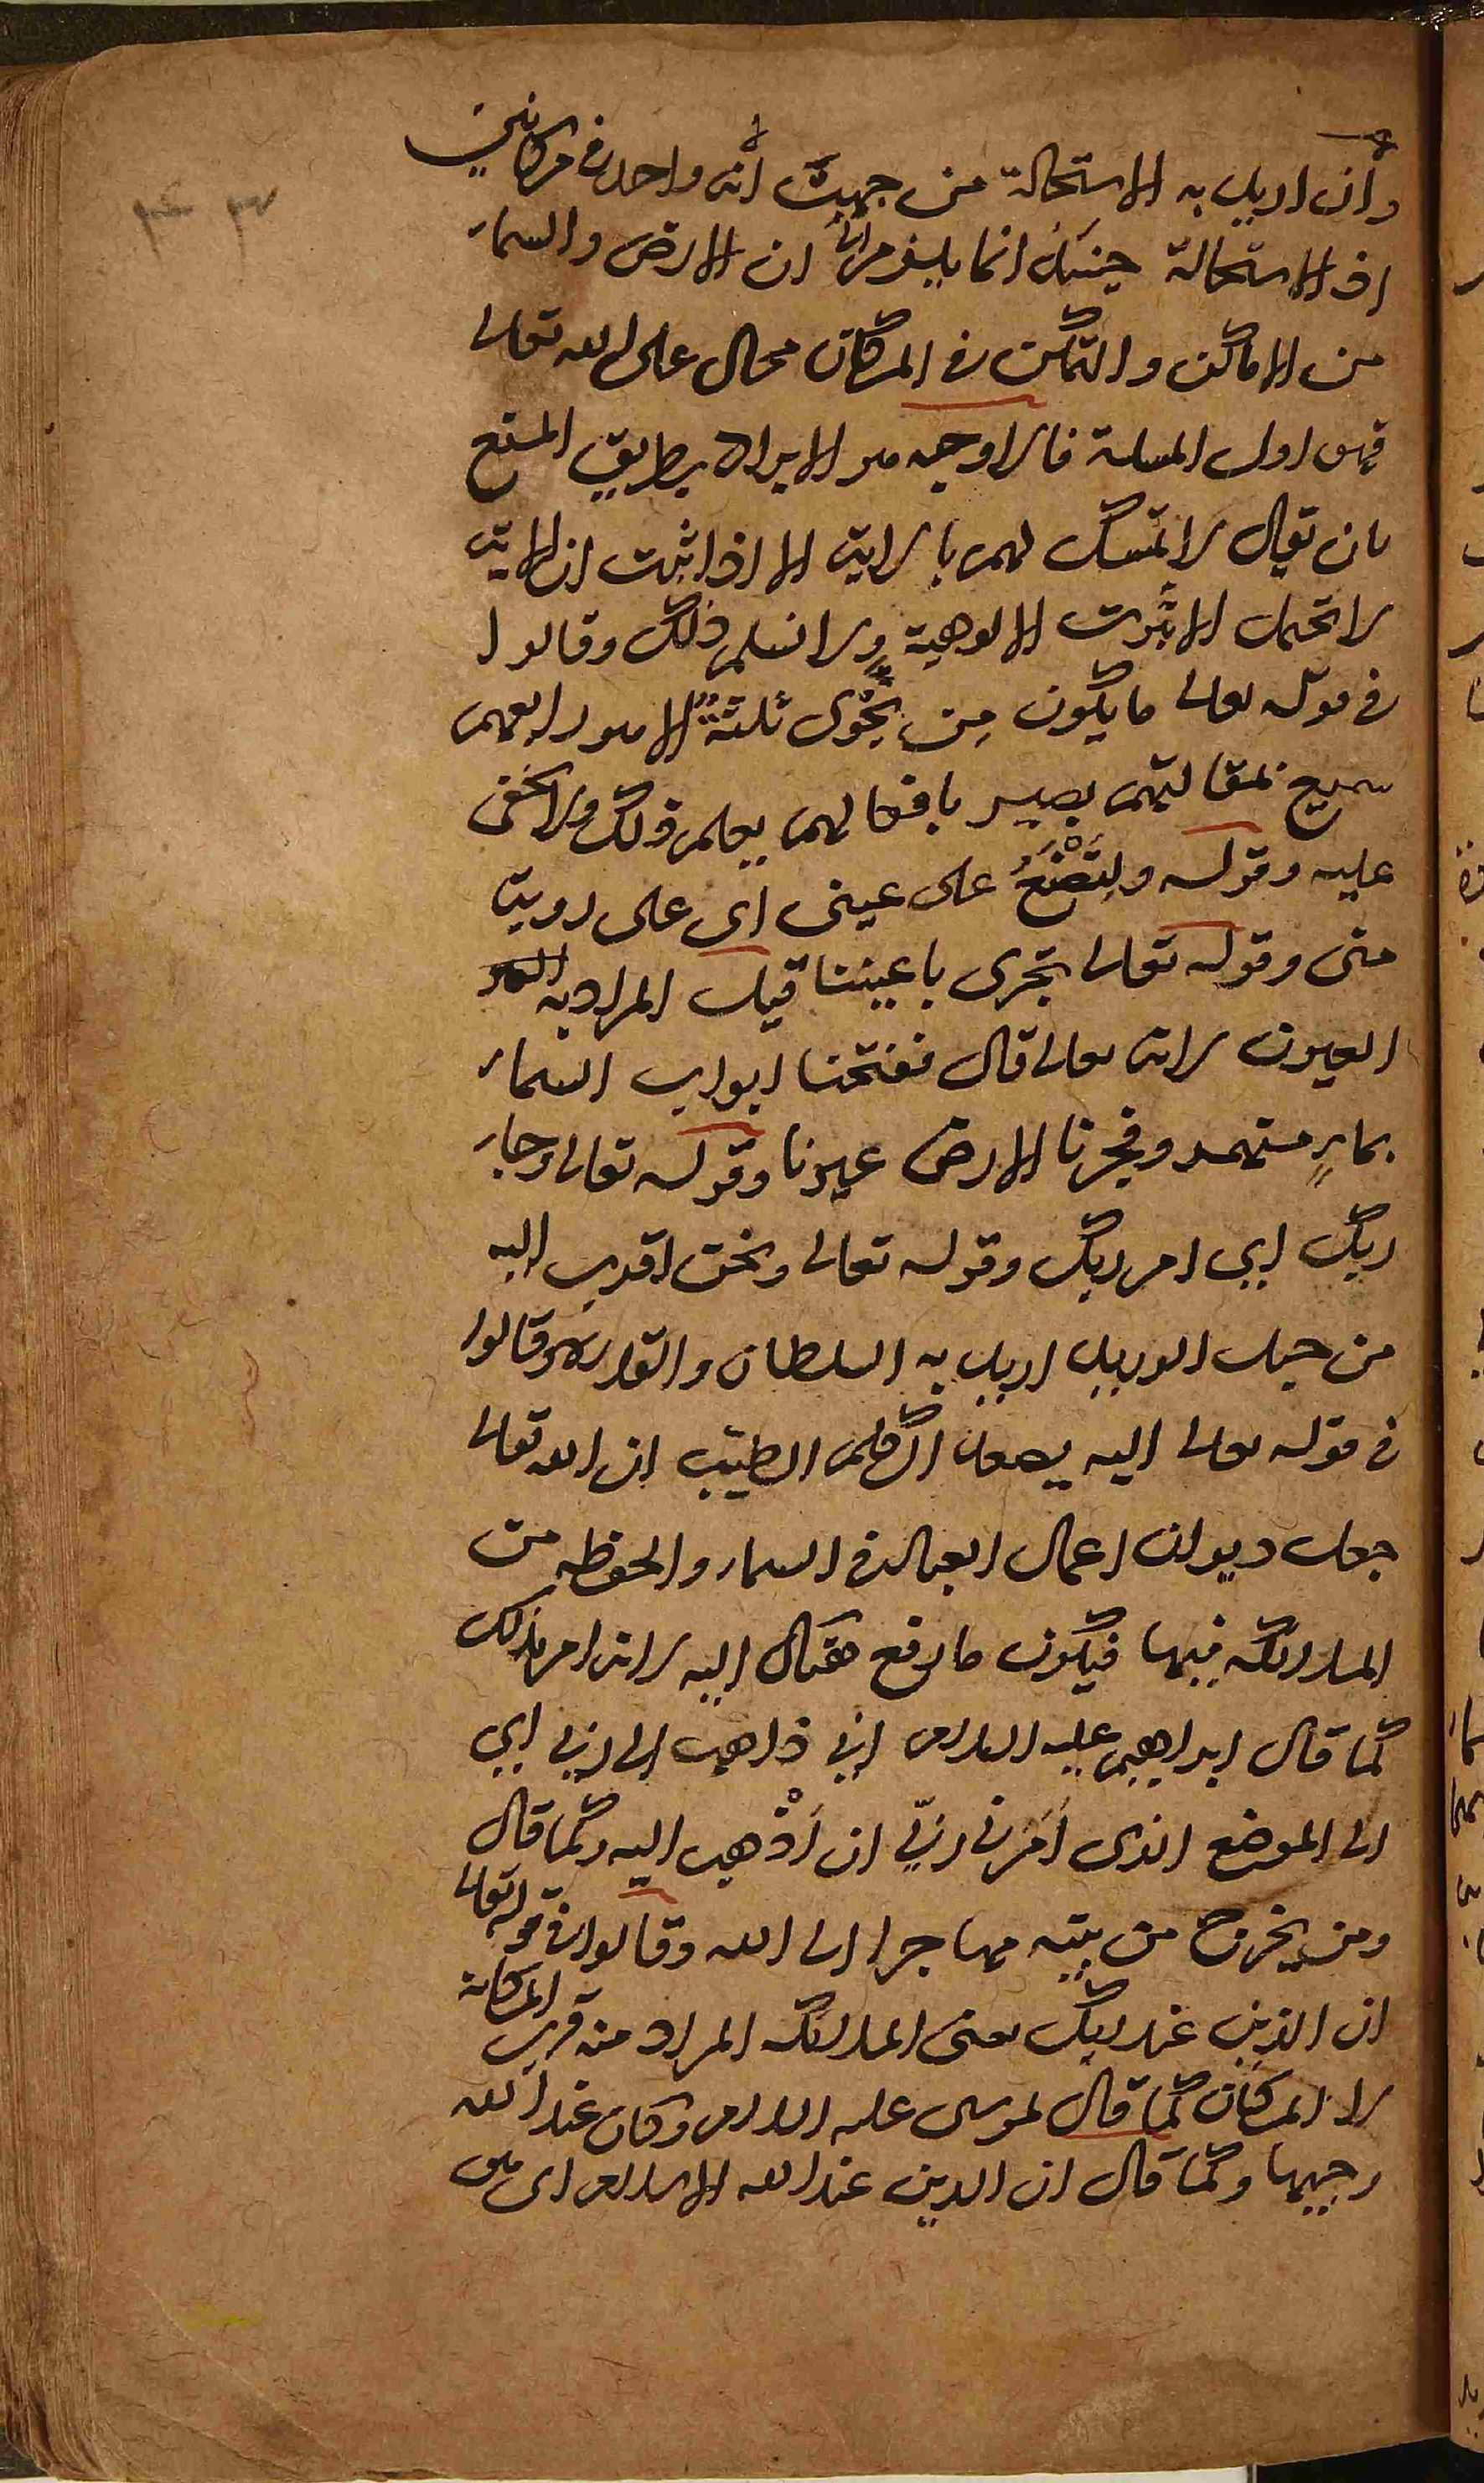 وان اريد به الاستحالة من جهة انه واحد في مكانين
اذ الاستحالة حينئذ انما يلزم ان الارض والسماء
من الاماكن والتمكن في المكان محال على الله تعالى
فهو اول المسلة فالاوجه هو الايراد بطريق المنع
بان يقال لا تمسك لهم بالاية الا اذا ثبت ان الاية
لا تحتمل الا ثبوت الالوهية ولا نسلم ذلك وقالوا
في قوله تعالى ما يكون مِن نَجْوى ثلثةٍ الا هو رابعهم
سميع لمقالتهم بصير بافعالهم يعلم ذلك ولا يخفى
عليه وقوله ولِتُصْنَعَ على عيني اى على روية
منى وقوله تعالى تجرى باعيننا قيل المراد به
العيون لانه تعالى قال ففتحنا ابواب السماء
بماءٍ منهمر وفجرنا الارض عيونا وقوله تعالى وجاء
ربك اى امر ربك وقوله تعالى ونحن اقرب اليه
من حبل الوريد اريد به السلطان والقدرة وقالوا
في قوله تعالى اليه يصعد الكلم الطيّب ان الله تعالى
جعل ديوان اعمال العباد في السماء والحفظه من
الملائكه فيها فيكون ما رفع هناك اليه لانه امر بذلك
كما قال ابراهيم عليه السلام اني ذاهب الى ربي اى
الى الموضع الذى اَمَرني ربّي ان اَذْهب اليه وكما قال
ومن يخرج من بيته مهاجرا الى الله وقالوا في قوله تعالى
ان الذين عند ربك يعنى الملائكه المراد منه قرب المكانة
لا المكان كما قال لموسى عليه السلام وكان عند الله
وجيها وكما قال ان الدين عند الله الاسلام اى هو